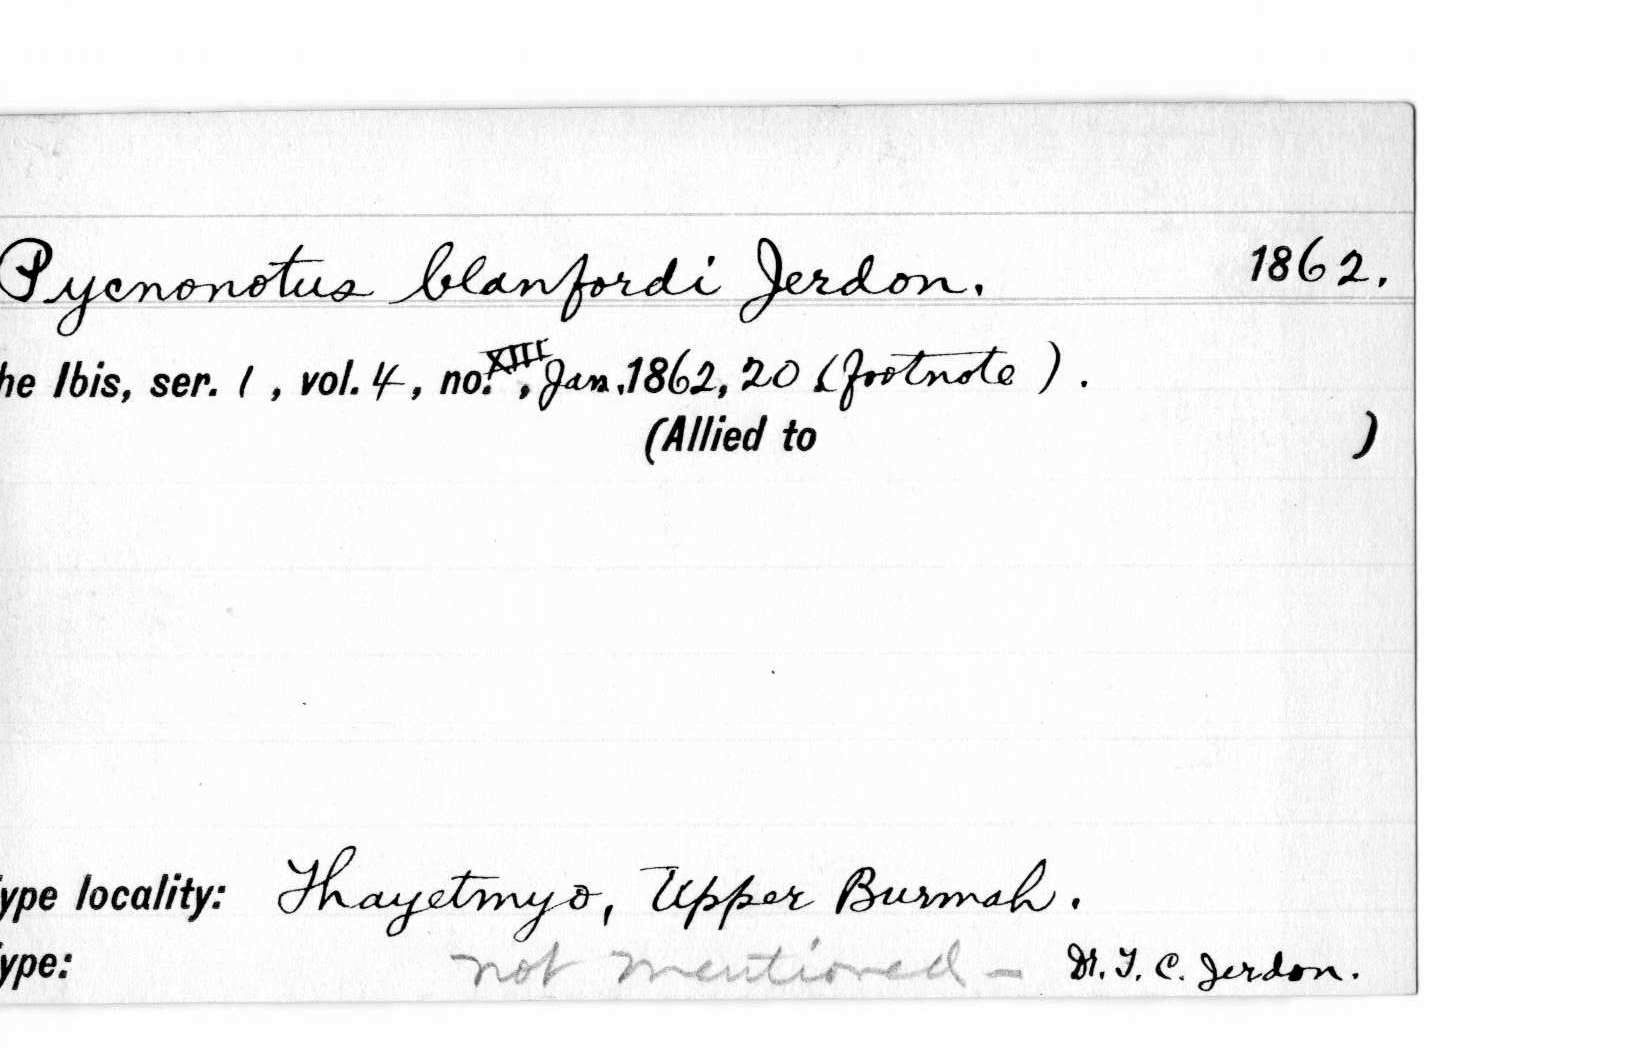 Pycnonotus blanfordi Jerdon. 1862.
he Ibis, ser. 1, vol. 4, no. XIII, Jan. 1862, 20 (footnote).
(Allied to )
ype locality: Thayetmyo, Upper Burmah.
ype: not mentioned – Dr. T. C. Jerdon.